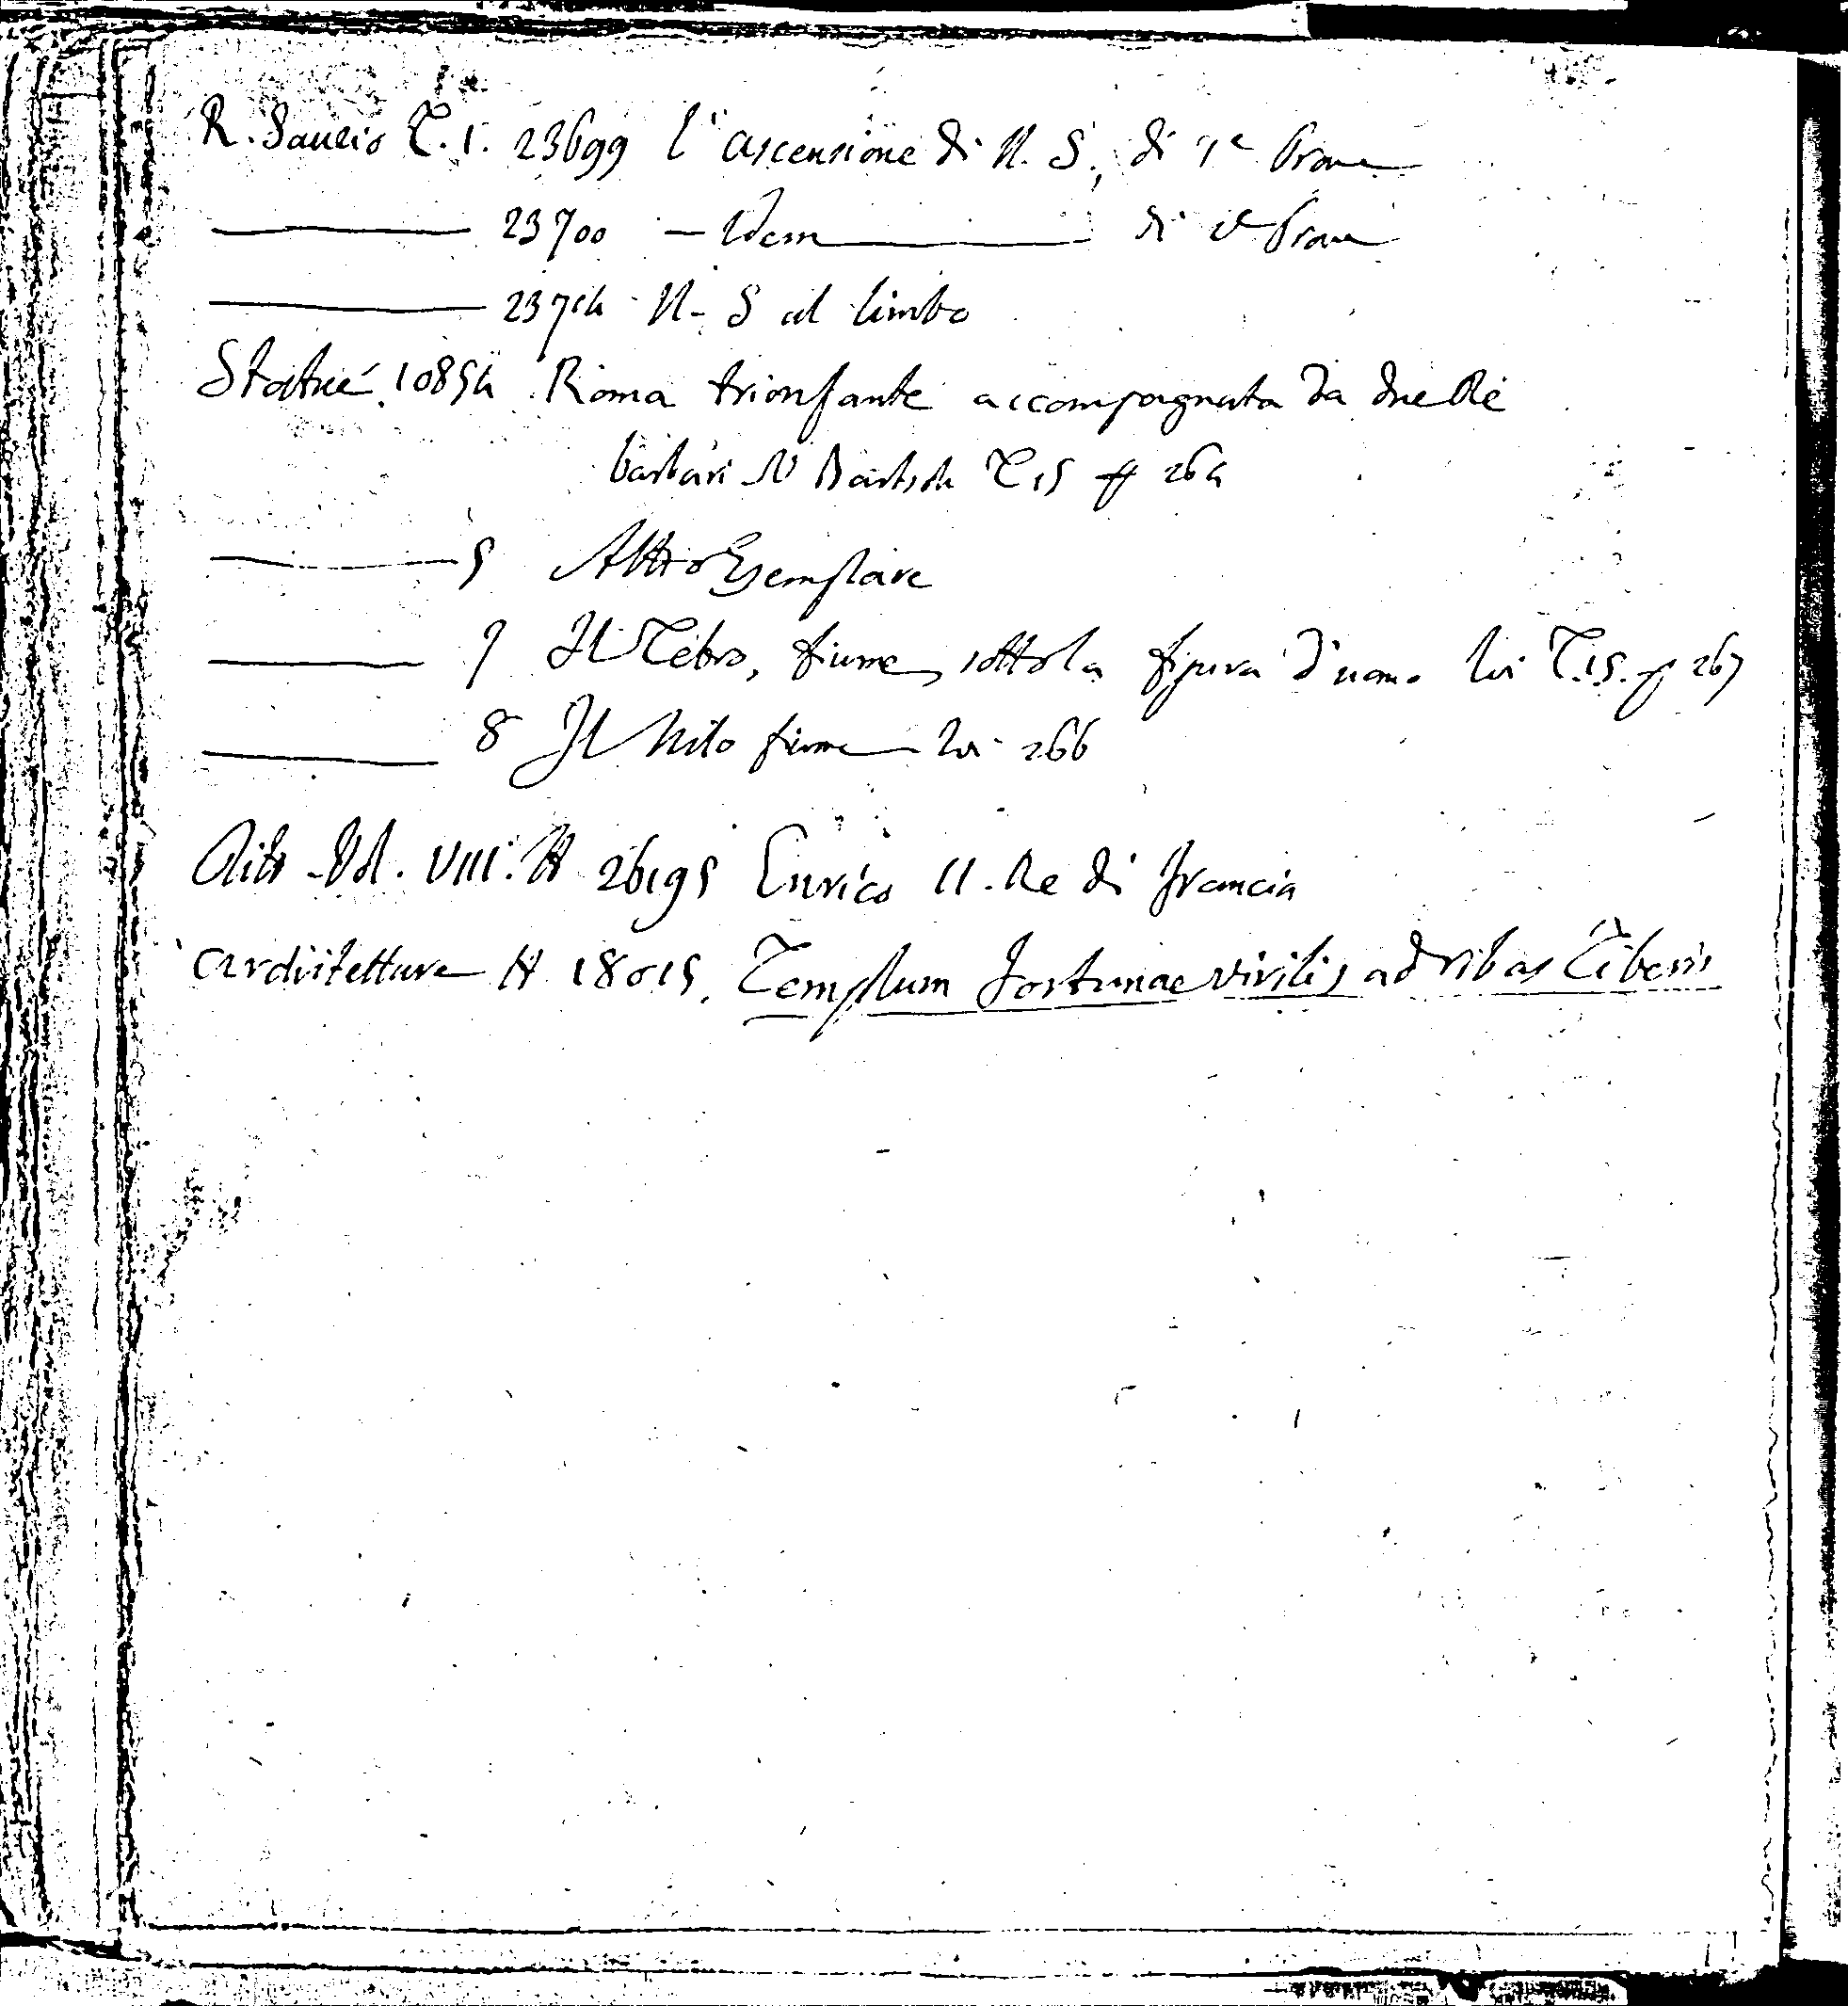 R. Sanzio T. 1. 23699 l'ascensione di N. S. di 1a Prova
23700 — Idem di 2a Prova
N. S al limbo
Statue 10854 Roma trionfante accompagnata da due Re
barbari V Bartsch T 15 ff 264
5 Altro Esemplare
7 Il Tebro, fiume, sotto la figura d'uomo Ivi T. 15. ff 267
8 Il Nilo fiume Ivi 266
Ritr Vol. VIII. N 26195 Enrico II. Re di Francia
Architettura N 18015. Templum Fortunae virilis ad ribas Tiberis